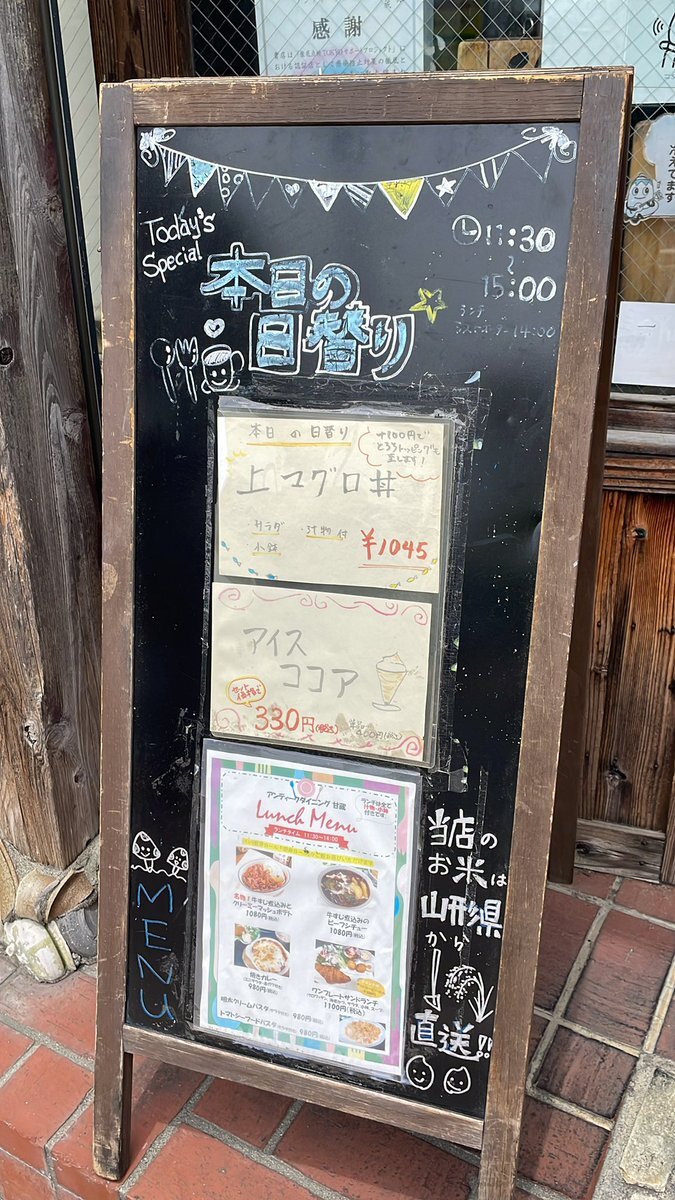 感謝
冷えてます
Today's
Special
本日の
日替り
11:30
~
15:00
ランチ
ラストオーダー 14:00
本日の日替り
+100円で
とろろトッピングも
出来ます!
上マグロ丼
・サラダ ・汁物 付
・小鉢
¥1045
アイス
ココア
セット
価格で
330円(税込)
単品
400円(税込)
アンティークダイニング 甘蔵
Lunch Menu
ランチタイム 11:30~14:00
ランチは全て
汁物・小鉢
付きです。
名物!牛すじ煮込みと
クリーミーマッシュポテト
1080円(税込)
牛すじ煮込みの
ビーフシチュー
1080円(税込)
焼きカレー
980円(税込)
ワンプレートサンドランチ
1100円(税込)
明太クリームパスタ 980円(税込)
トマトシーフードパスタ 980円(税込)
MENU
当店の
お米は
山形県
から
直送!!